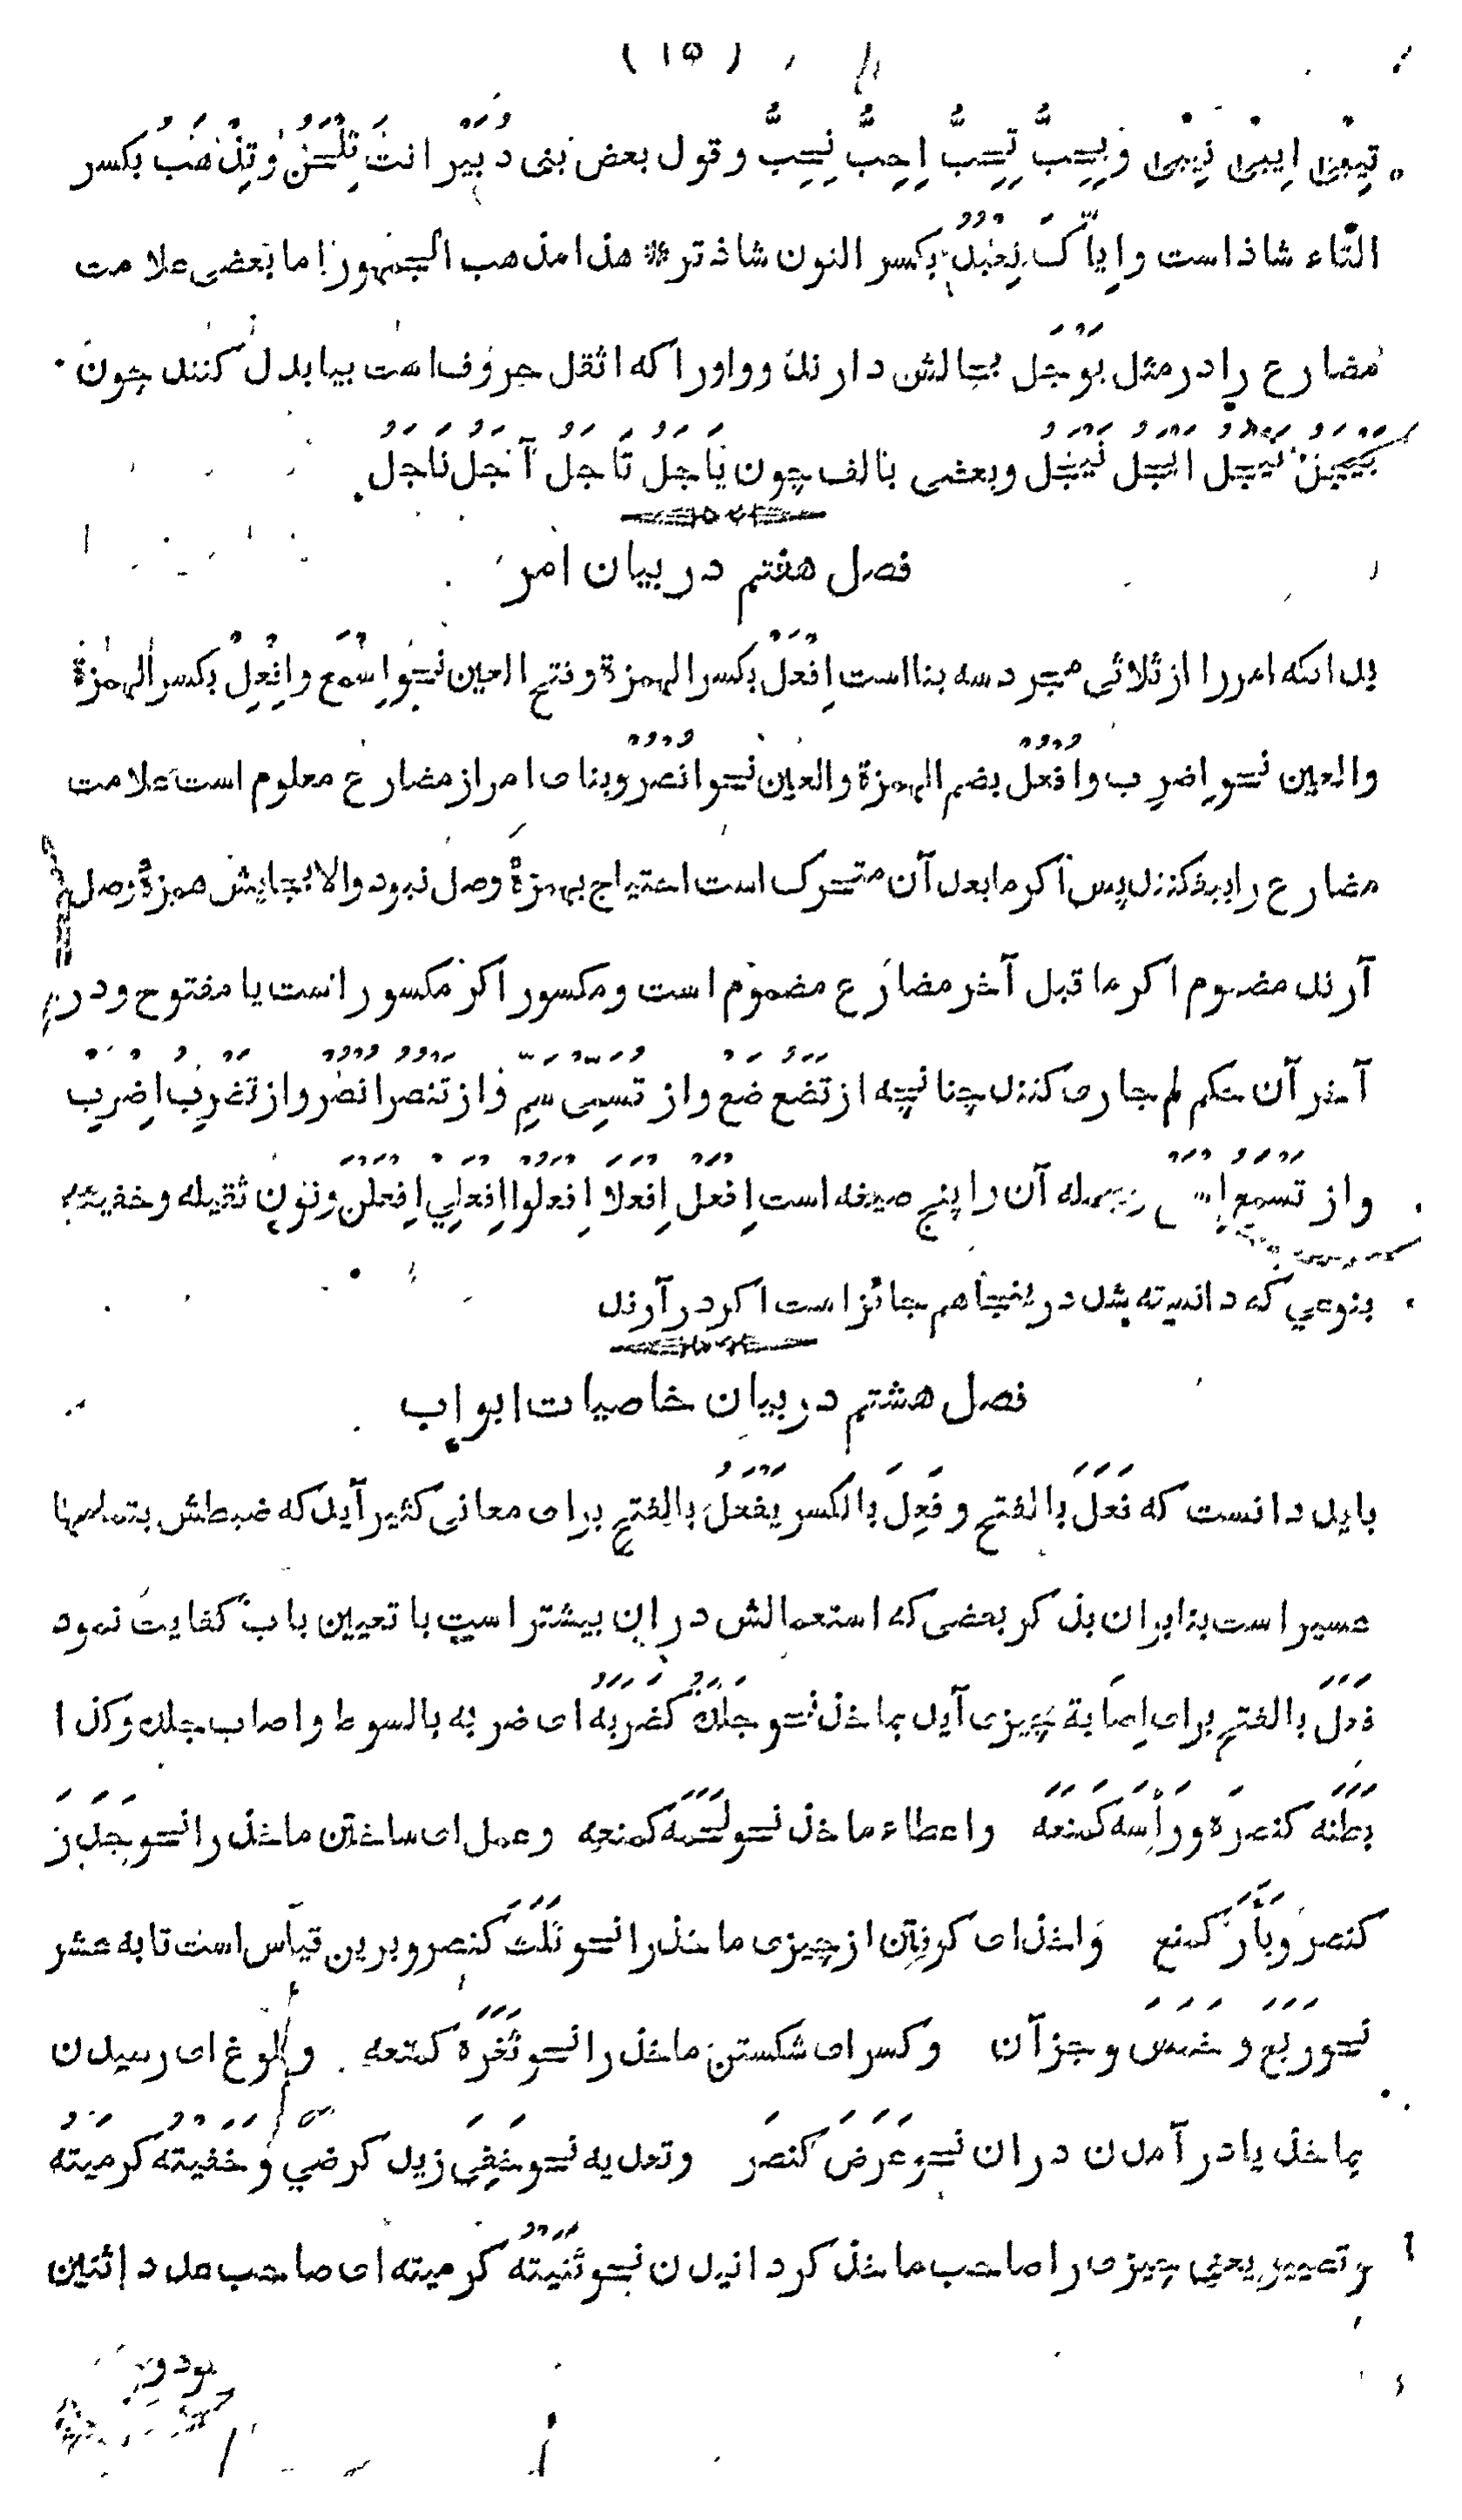 ( ۱۵ )
تِیْبٰی اِیبٰی نِیْبٰی وَیِحِبُّ تِحِبُّ اِحِبُّ نِحِبُّ وقول بعض بنی دُبَیْر انتَ تِلْحَنُ وتِذْهَبُ بکسر
التاء شاذ است واِیَّاکَ نِعْبُدُ بکسر النون شاذ تر * هذا مذهب الجمهور اما بعضی علامت
مضارع را در مثل یَوْجَل بحالش دارند وواو را که اثقل حروف است بیا بدل کنند چون
یَیْجَلُ تَیْجَلُ اَیْجَلُ نَیْجَلُ وبعضی بالف چون یَاجَلُ تَاجَلُ آجَلُ نَاجَلُ
فصل هفتم در بیان امر
بدانکه امر را از ثلاثی مجرد سه بنا است اِفْعَلْ بکسر الهمزة وفتح العین نحو اِسْمَع واِفْعِلْ بکسر الهمزة
والعین نحو اِضرِب واُفْعُلْ بضم الهمزة والعین نحو اُنْصُر وبنای امر از مضارع معلوم است علامت
مضارع را بیفکنند پس اکر ما بعد آن متحرک است احتیاج بهمزۀ وصل نبود والا بجایش همزۀ وصل
آرند مضموم اکر ما قبل آخر مضارع مضموم است ومکسور اکر مکسور است یا مفتوح ودر
آخر آن حکم لم جاری کنند چنانچه از تَضَعُ ضَعْ واز تُسَمِّی سَمِّ واز تَنْصُرُ اُنْصُرْ واز تَضْرِبُ اِضْرِبْ
واز تَسْمَعُ جمله آن را پنج صیغه است اِفْعَلْ اِفْعَلا اِفْعَلُوا اِفْعَلِي اِفْعَلْنَ ونون ثقیله وخفیفه
بنوعي که دانسته شد در ینجا هم جائز است اکر در آرند
فصل هشتم در بیان خاصیات ابواب
باید دانست که فَعَلَ بالفتح وفَعِلَ بالکسر یَفْعَلُ بالفتح برای معانی کثیر آید که ضبطش بتمامها
عسیر است بنابران بذکر بعضی که استعمالش دران بیشتر است با تعیین باب کفایت نمود
فَعَلَ بالفتح برای اِصَابة چیزی آید بماخذ نحو جَلَدَهُ کَضَرَبَهُ ای ضربه بالسوط واصاب جلده وکذا
بَطَنَه کنصرَه ورَأَسَه کَمَنَعَه واعطاء ماخذ نحو لَحَمَه کمنعه وعمل ای ساختن ماخذ را نحو جَدَرَ
کنصرَ وبَأَرَ کمنع وَاخذ ای کرفتن از چیزی ماخذ را نحو ثَلَثَ کنصر وبرین قیاس است تا به عشر
نحو رَبَعَ وخَمَسَ وجز آن وکسر ای شکستن ماخذ را نحو ثَغَرَه کمنعه وبلوغ ای رسیدن
بماخذ یا در آمدن دران نحو عَرَضَ کنصَر وتعدیه نحو خَفِيَ زید کرضي وخَفَیْتُه کرمیتُه
وتصییر یعنی چیزی را صاحب ماخذ کردانیدن نحو ثَنَیْتُه کرمیته ای صاحب عدد اثنین